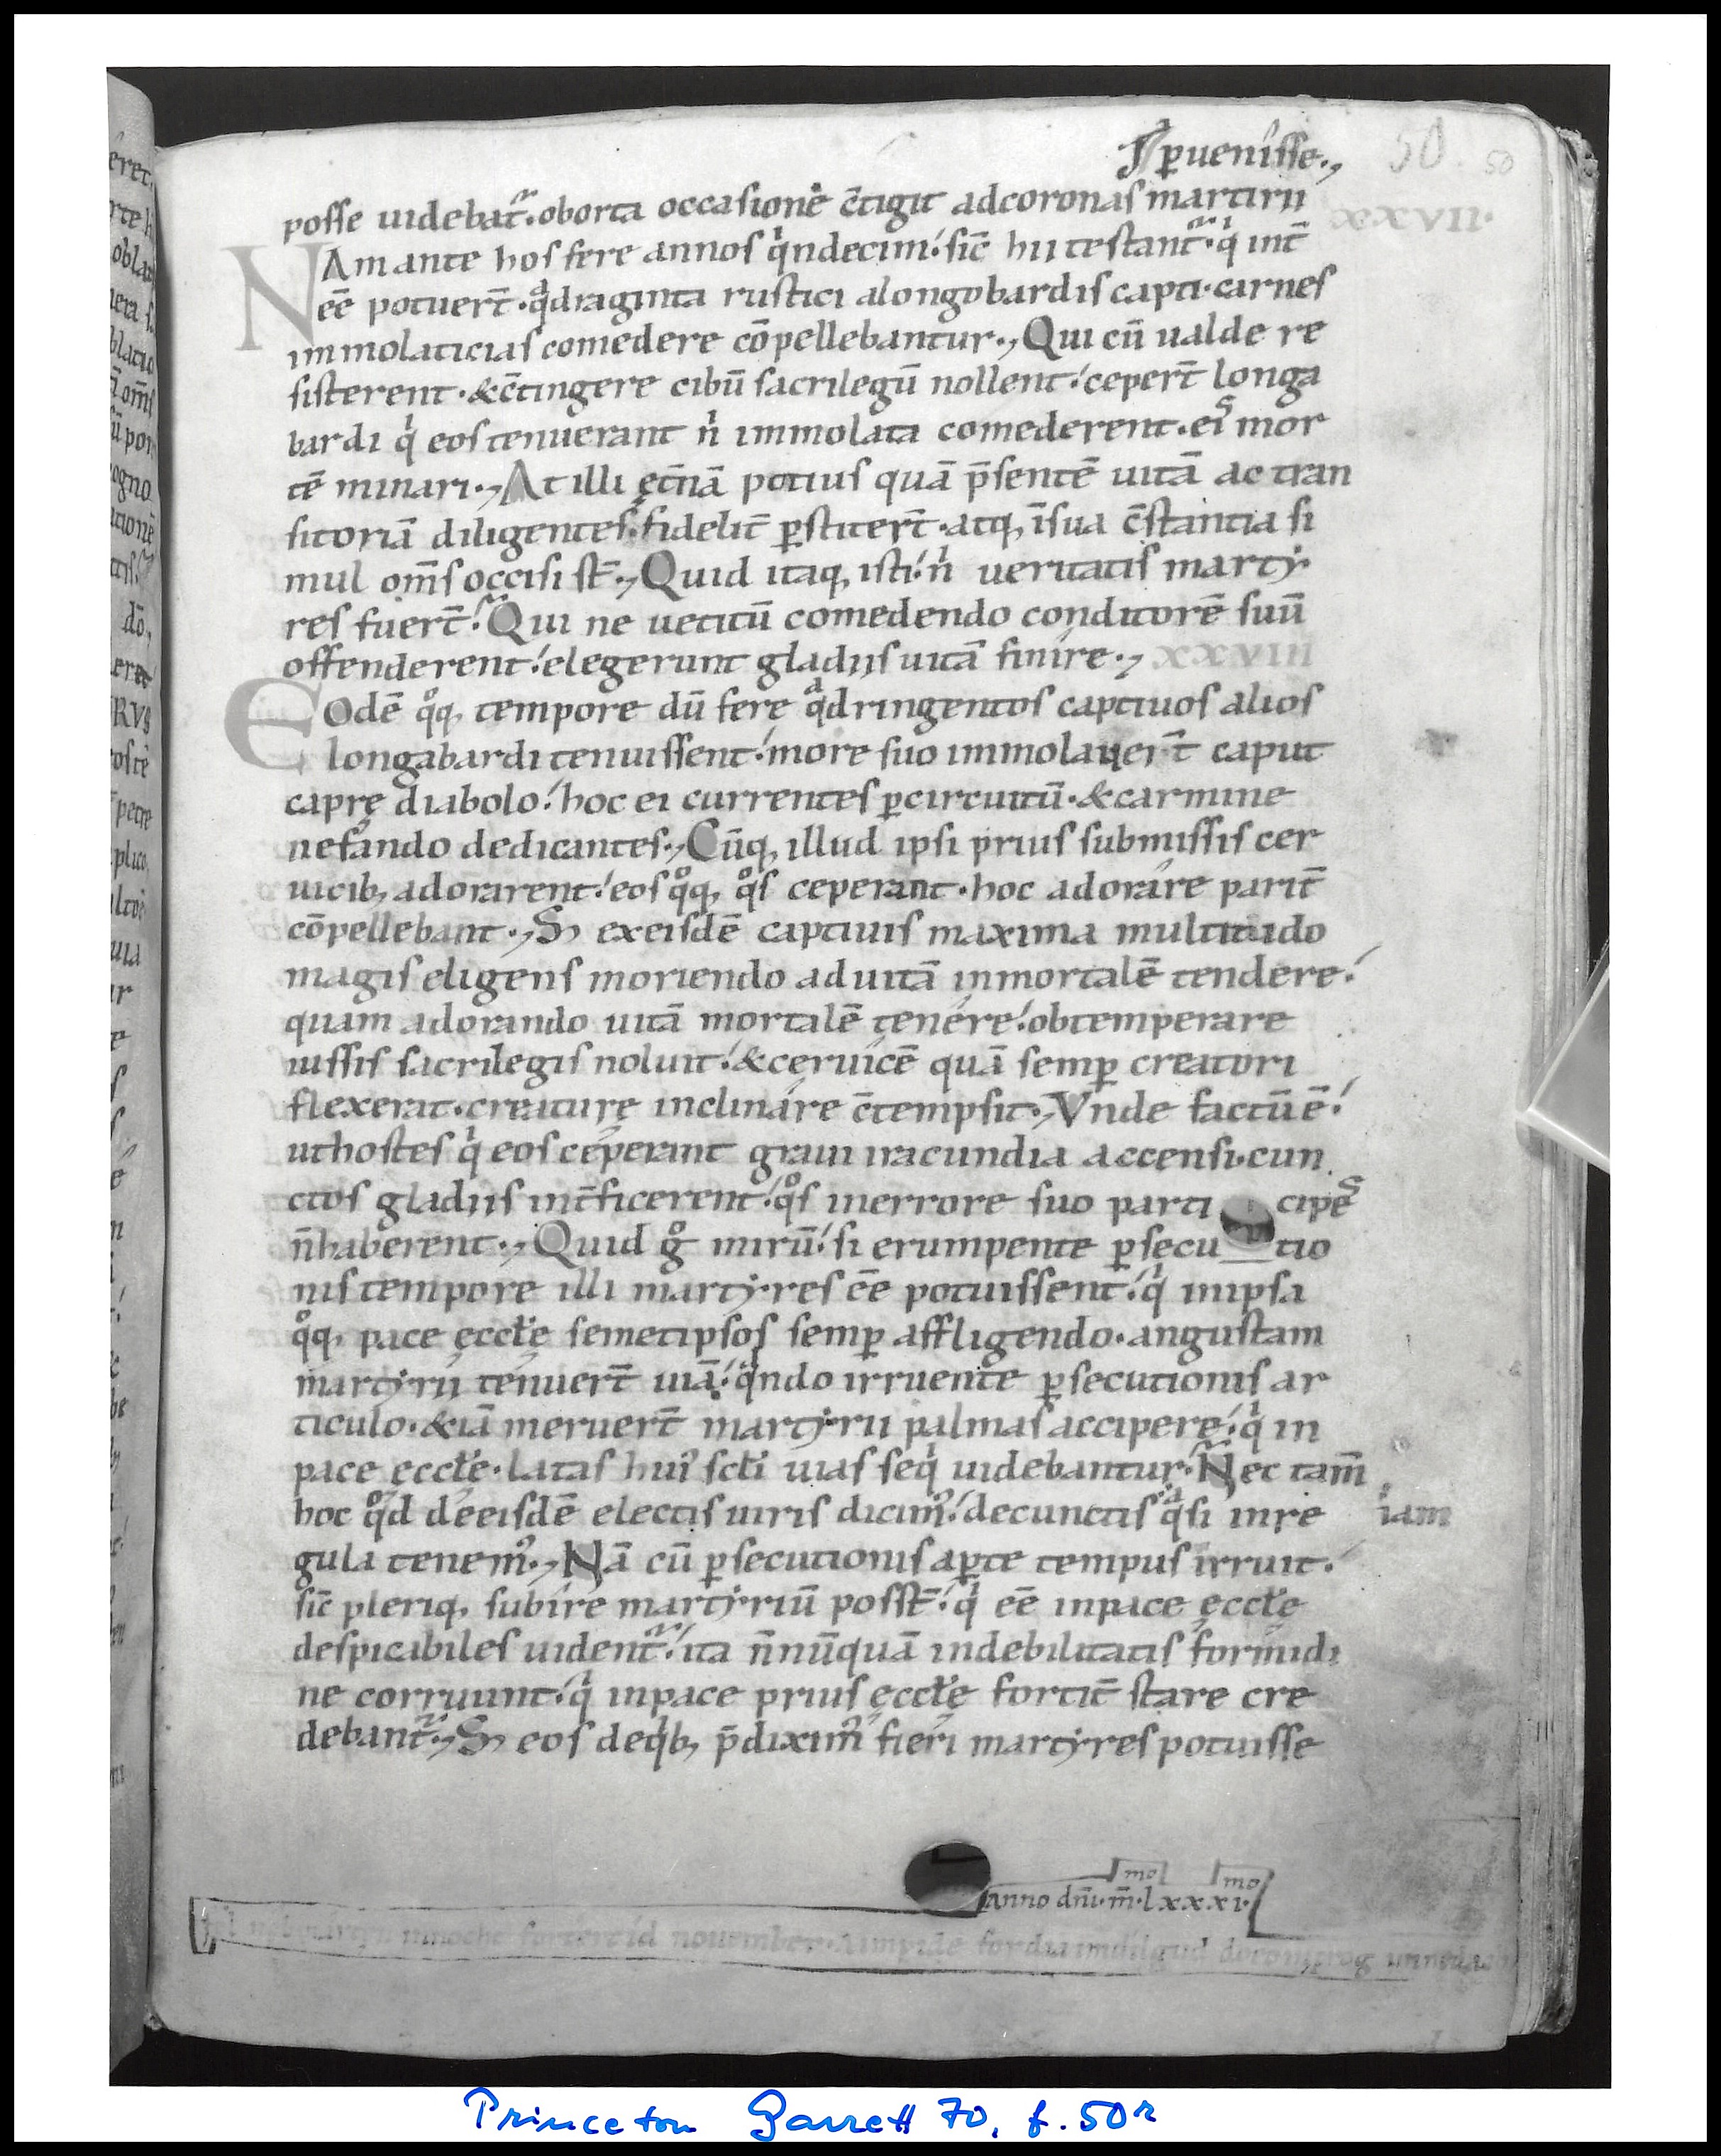 ꝑuenisse.,
50. 50
posse uidebat̄.oborta occasione c̄tigit adcoronas martirii
XXVII.
NAm ante hos fere annos qͥndecim.sic̄ hii testant̄.qͥ int̄
ēē potuer̄t.qᵃdraginta rustici alongobardis capti.carnes
immolaticias comedere cōpellebantur., Qui cū ualde re
sisterent.&c̄tingere cibū sacrilegū nollent.ceper̄t longa
bardi qͥ eos tenuerant nͥ immolata comederent.eis mor
tē minari., At illi ęt̄nā potius quā p̄sentē uitā ac tran
sitoriā diligentes.fidelit̄ ꝑstiter̄t.atq, īsua c̄stantia si
mul om̄s occisi st̄., Quid itaq, isti.nͥ ueritatis marty
res fuer̄t. Qui ne uetitū comedendo conditorē suū
offenderent.elegerunt gladiis uitā finire., XXVIII
EOdē qͦq, tempore dū fere qᵃdringentos captiuos alios
longabardi tenuissent.more suo immolauer̄t caput
caprę diabolo.hoc ei currentes ꝑcircuitū.&carmine
nefando dedicantes., Cūq, illud ipsi prius submissis cer
uicib, adorarent.eos qͦq, qͦs ceperant.hoc adorare parit̄
cōpellebant., S; exeisdē captiuis maxima multitudo
magis eligens moriendo aduitā inmortalē tendere.
quam adorando uitā mortalē tenere.obtemperare
iussis sacrilegis noluit.&ceruicē quā semꝑ creatori
flexerat.creaturę inclinare c̄tempsit., Vnde factū ē.
uthostes qͥ eos ceperant graui iracundia accensi.cun
ctos gladiis int̄ficerent.qͦs inerrore suo parti cipes
n̄haberent., Quid gͦ mirū.si erumpente ꝑsecu tio
nis tempore illi martyres ēē potuissent.qͥ inipsa
qͦq, pace ęccłę semetipsos semꝑ affligendo.angustam
martyrii tenuer̄t uiā.qͣndo irruente ꝑsecutionis ar
ticulo.&iā meruer̄t martyrii palmas accipere.qͥ in
pace ęccłę.latas huiꝰ scłi uias seqͥ uidebantur. Nec tam̄
hoc qͦd deeisdē electis uiris dicimꝰ.decunctis qᵃsi inre iam
gula tenemꝰ., Nā cū ꝑsecutionis aꝑte tempus irruit.
sic̄ pleriq, subire martyriū posst̄.qͥ ēē inpace ęccłę
despicabiles uident̄.ita n̄nūquā indebilitatis formidi
ne corruunt.qͥ inpace prius ęccłę fortit̄ stare cre
debant̄., S; eos deqͥb, p̄diximꝰ fieri martyres potuisse
mo mo
Anno dn̄i.m̄.lxxxi.
nouember.
Princeton Garrett 70, f. 50r